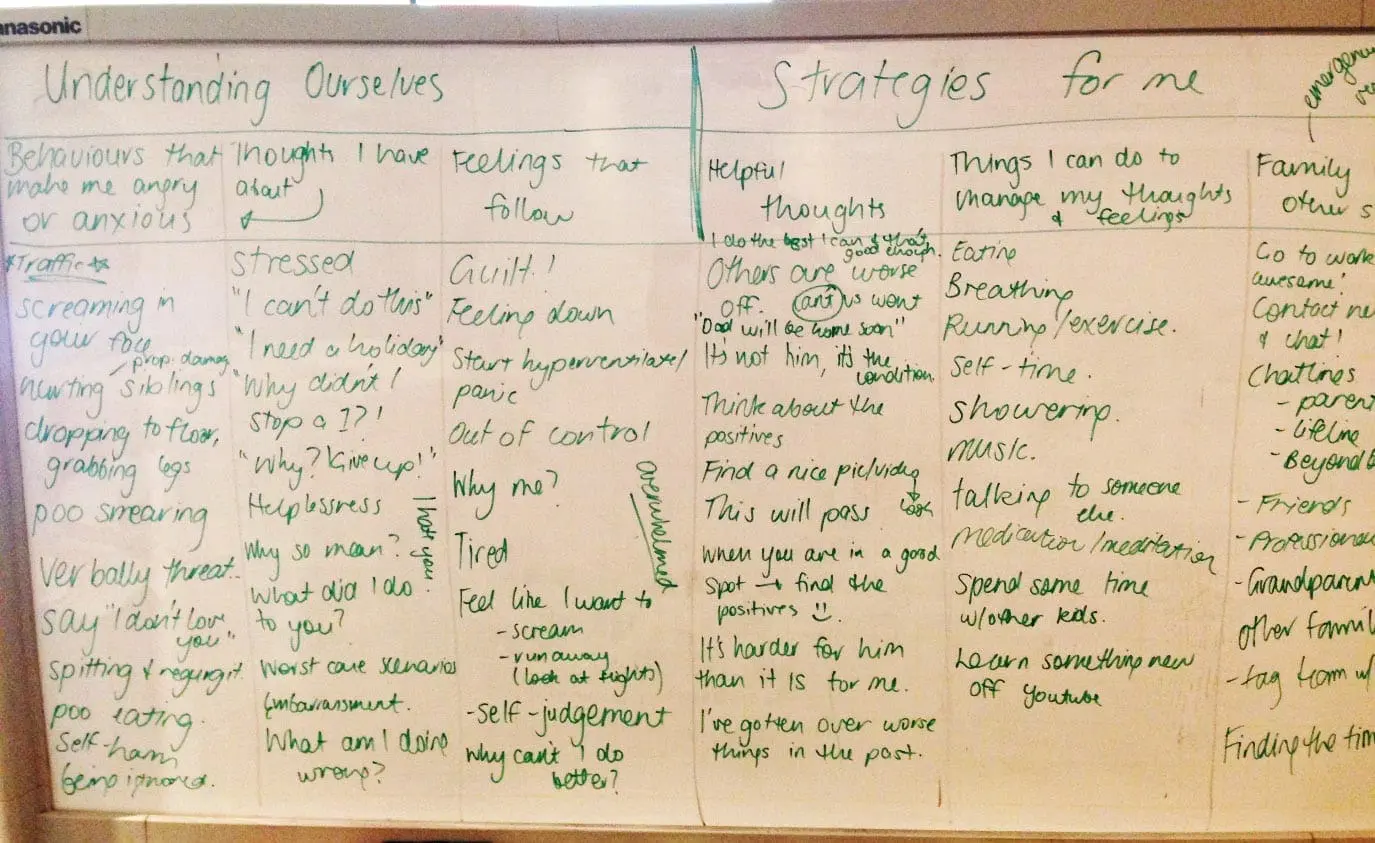 anasonic
Understanding Ourselves
Behaviours that
make me angry
or anxious
*Traffic*
screaming in
your face
- prop. damag
hurting siblings
dropping to floor,
grabbing legs
poo smearing
verbally threat.
say "I don't love
you"
spitting & regurgit.
poo eating.
Self-harm
being ignored.
Thoughts I have
about
stressed
"I can't do this"
"I need a holiday"
"Why didn't I
stop @ 1?!
"Why? Give up!"
I hate you
Helplessness
Why so mean?
What did I do
to you?
Worst case scenarios
Embarrassment.
What am I doing
wrong?
Feelings that
follow
Guilt!
Feeling down
Start hyperventilate/
panic
Out of control
Why me?
overwhelmed
Tired
Feel like I want to
- scream
- runaway
(look at flights)
- self-judgement
Why can't I do
better?
Strategies for me
Helpful
thoughts
I do the best I can & that's
good enough.
Others are worse
off.
us
"Dad will be home soon"
It's not him, it's the
condition.
Think about the
positives
Find a nice pic/video
look
This will pass
When you are in a good
spot → find the
positives ☺.
It's harder for him
than it IS for me.
I've gotten over worse
things in the past.
Things I can do to
manage my thoughts
& feelings
Eating
Breathing
Running/exercise.
Self-time.
Showering.
music.
talking to someone
else.
medication/meditation
Spend some time
w/other kids.
Learn something new
off youtube
emergency
Family
other s
Go to work
awesome!
Contact ne
& chat!
Chatlines
- parent
- lifeline
- Beyond b
- Friends
- Professiona
- Grandparent
other famil
- tag team w/
Finding the tim